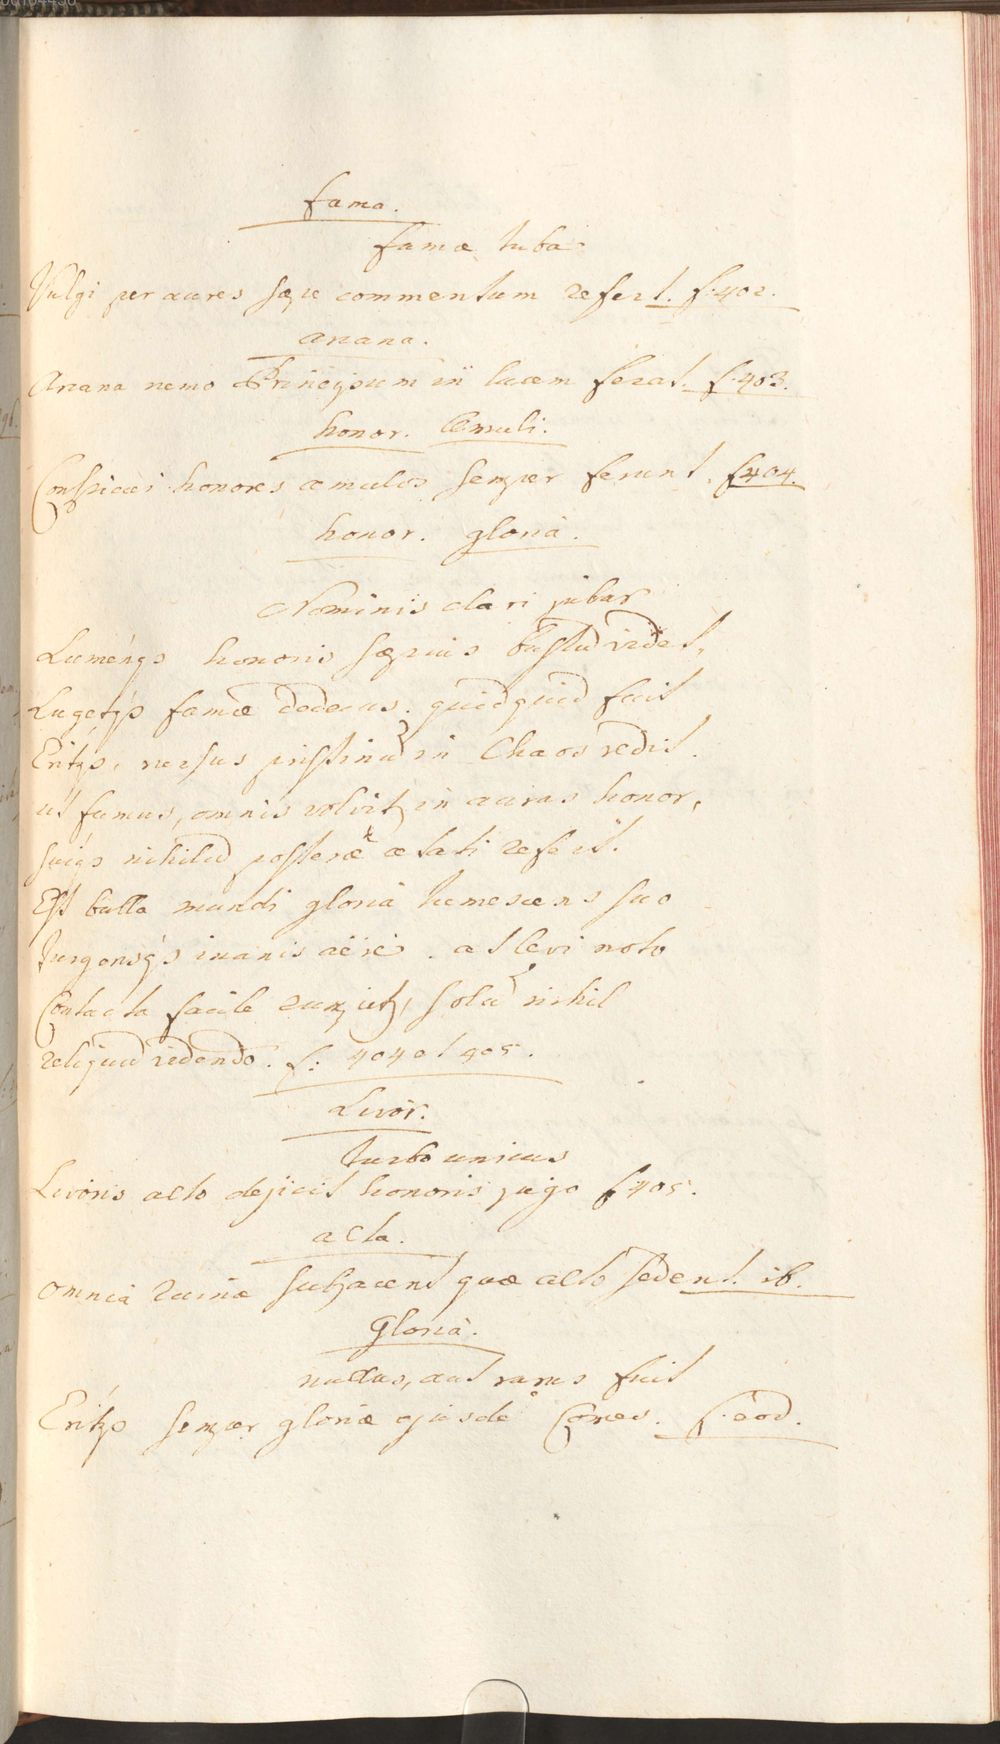 fama.
famæ tuba
Vulgi per aures sæpe commentum refert. f. 402.
arcana.
Arcana nemo Principum in lucem ferat. f. 403.
honor. Æmuli.
Conspicui honores æmulos semper ferunt. f 404.
honor. gloria.
Nominis clari jubar
Lumenqs honoris sæpius bustũ videt,
Lugetqs famæ dedecus. quidquid fuit
Eritqs, rursus pristinũ in Chaos redit.
ut fumus, omnis volvitʒ in auras honor,
suiqs nihilũ posteræ ætati refert.
Est bulla mundi gloria tumescens suo
turgensqs inanis aëre. at levi noto
Contacta facile rumpitʒ, solũ nihil
reliquũ videndo. f: 404 et 405.
Livor.
Turbo unicus
Livoris alto dejicit honoris jugo f 405.
alta.
omnia ruinæ subjacent quæ alto sedent. ib.
Gloria.
nullus, aut rarus fuit
Eritqs semper gloriæ ejusdẽ Comes. f. eod.